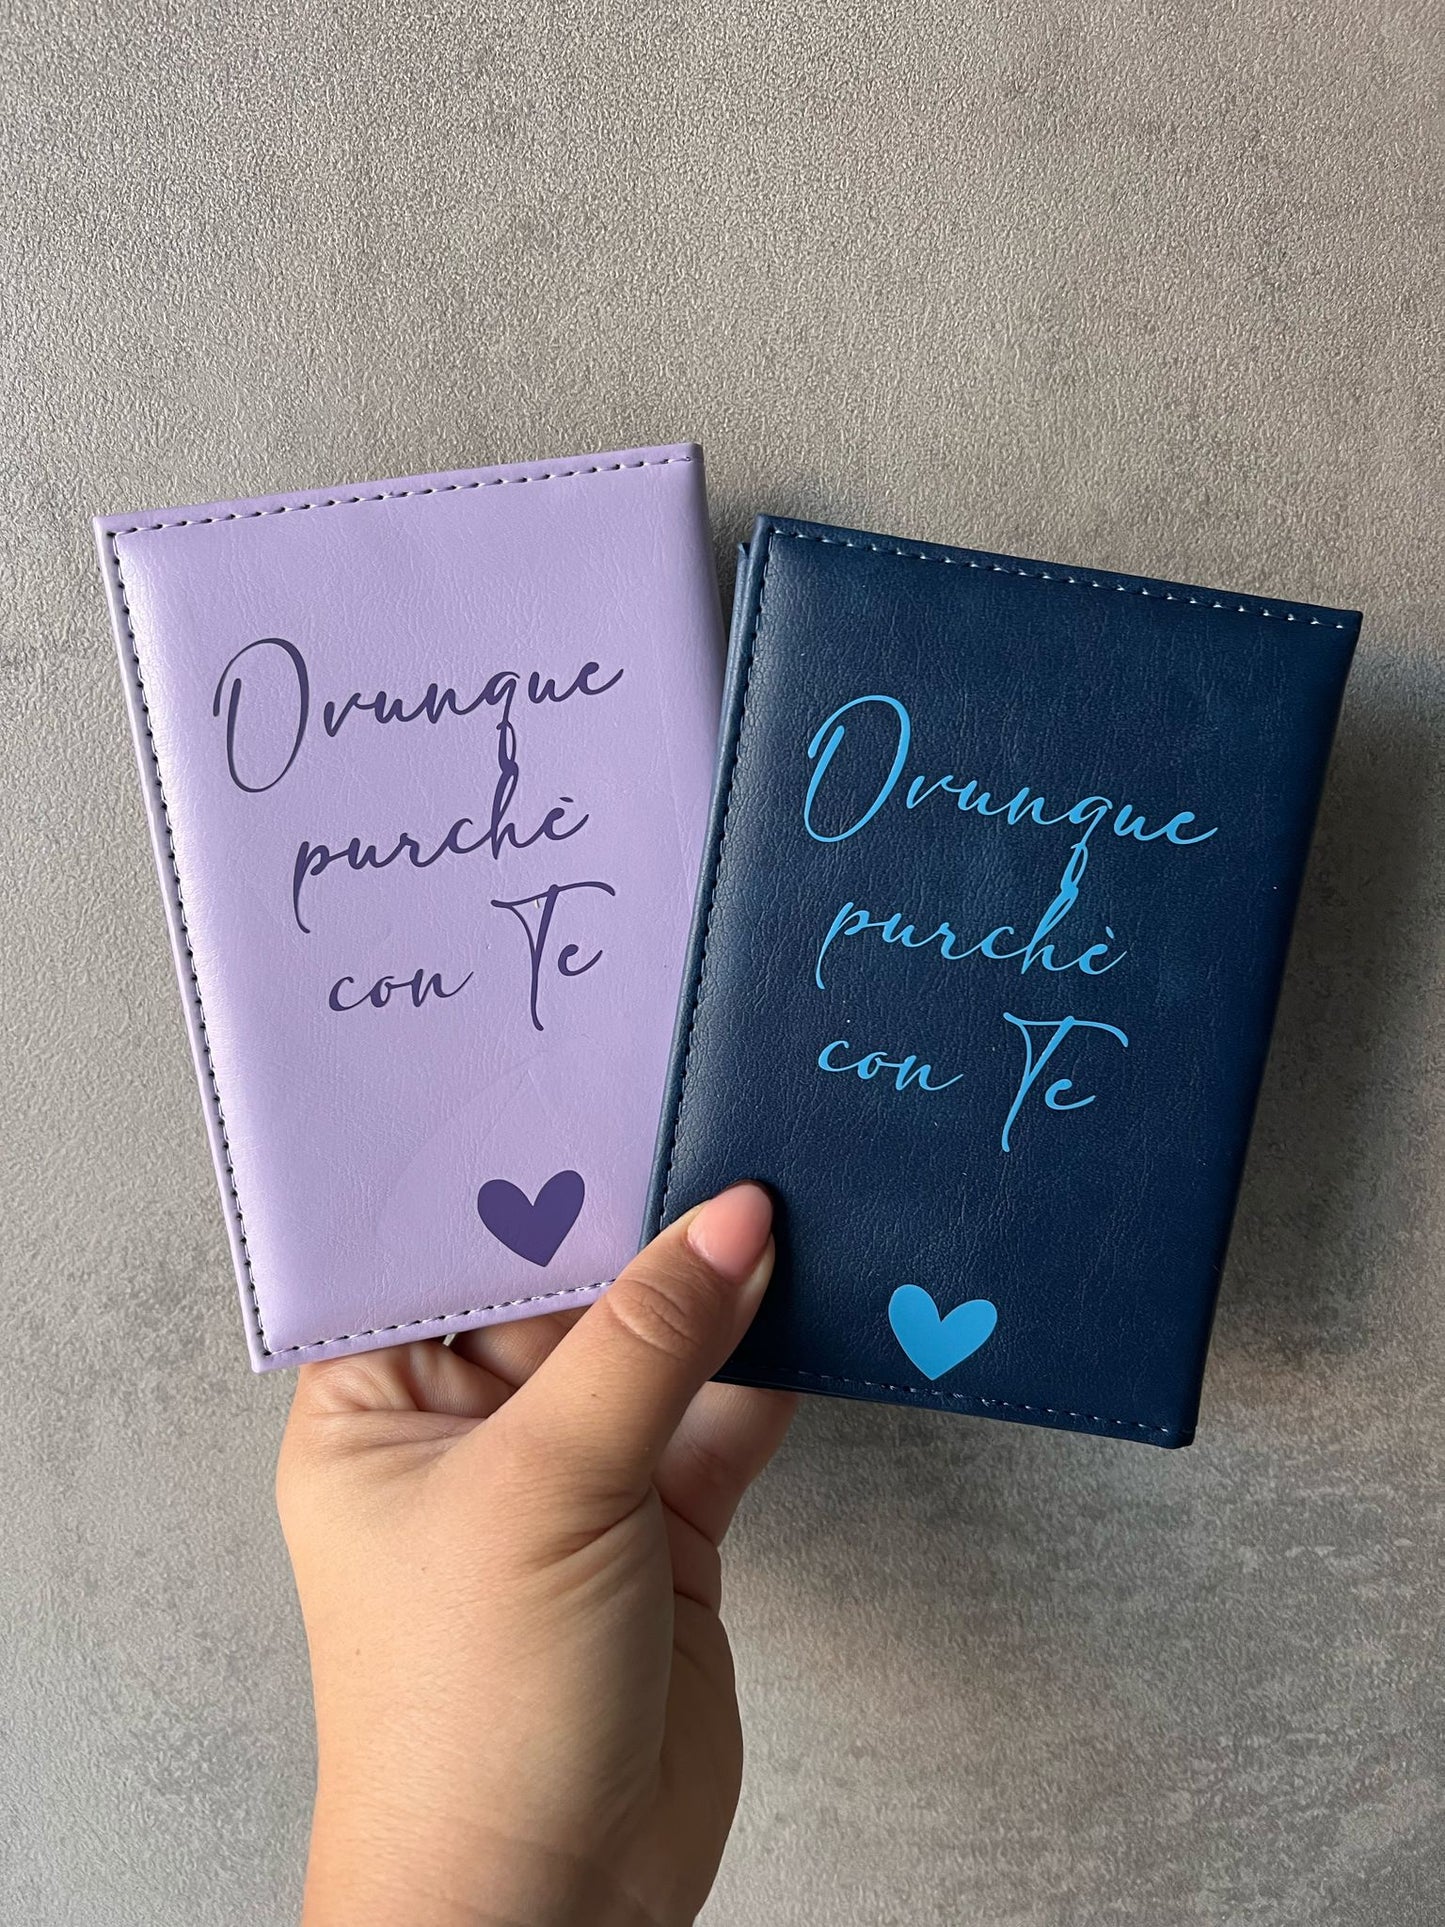 Ovunque
purchè
con Te
Ovunque
purchè
con Te